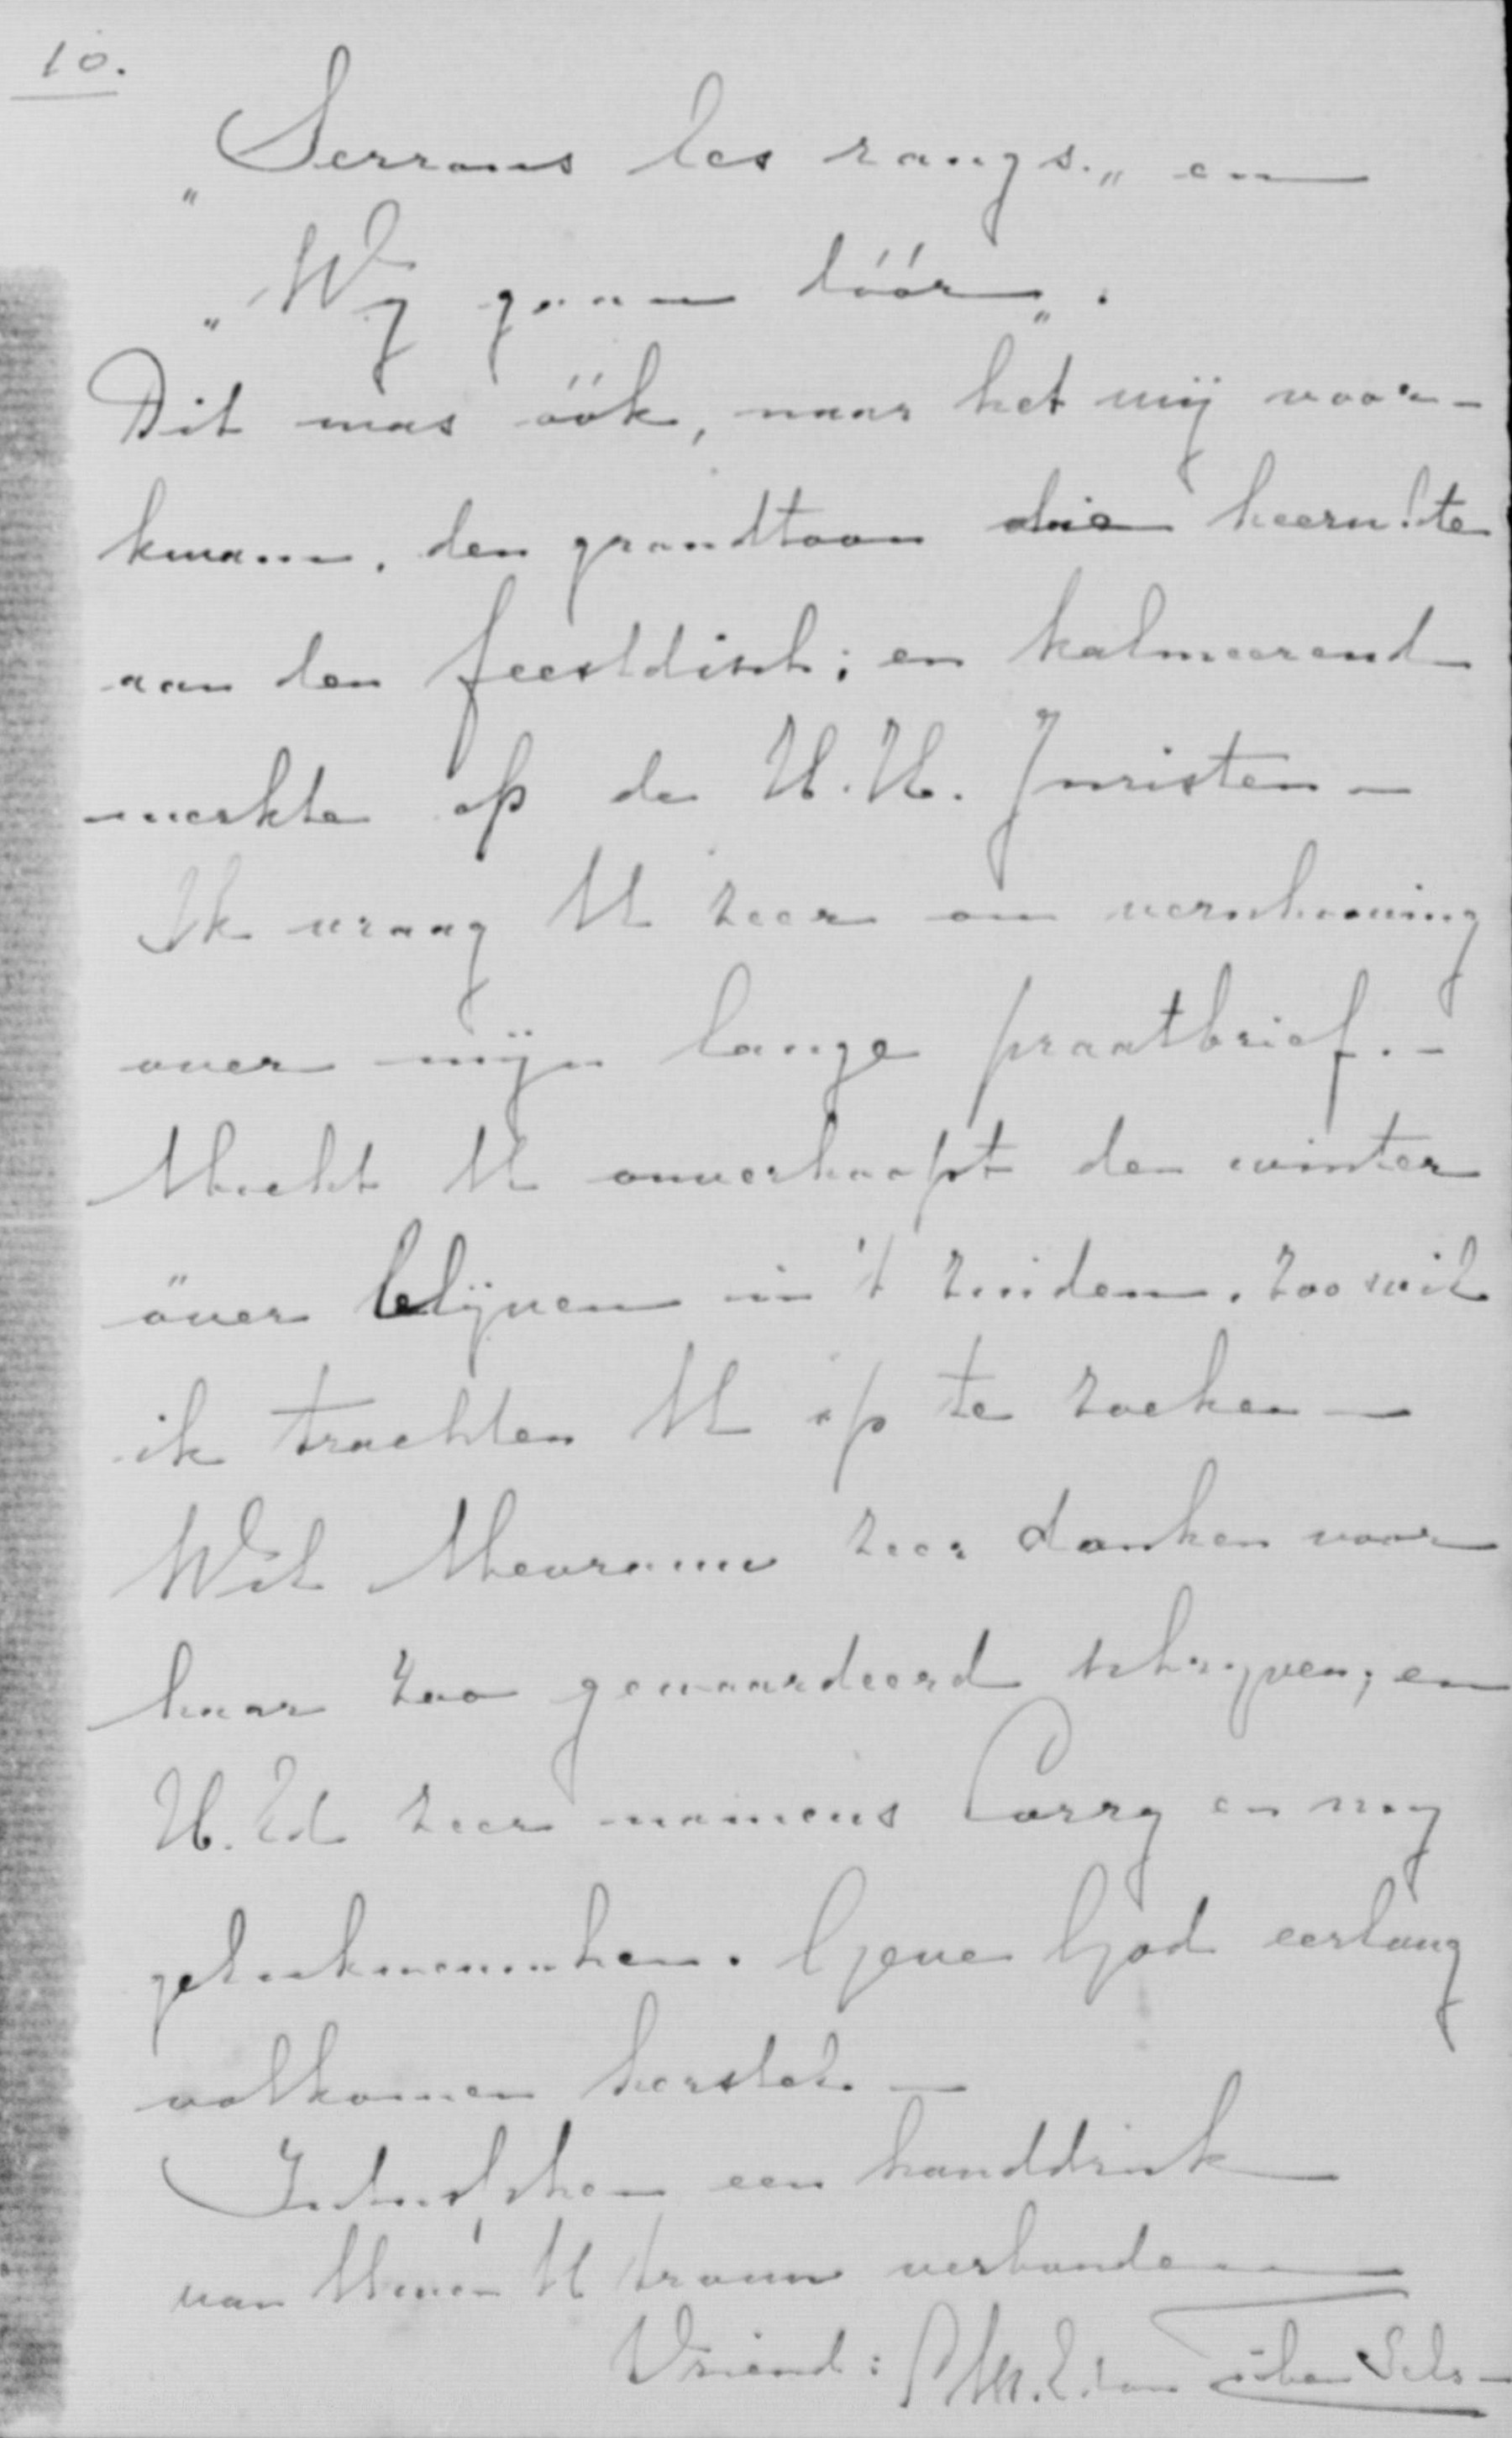 10.
„Serrons les rangs.„ en
„Wij gaan dóór„.
Dit was óók, naar het mij voor-
kwam, den grondtoon die heerschte
aan den feestdisch; en kalmeerend
werkte op de H.H. Juristen —
Ik vraag U zeer om verschooning
over mijn lange praatbrief. -
Mocht U onverhoopt den winter
over blijven in 't Zuiden, zoo wil
ik trachten U op te zoeken —
Wil Mevrouw zeer danken voor
haar zoo gewaardeerd schrijven; en
U.Ed zeer namens Corry en mij
gelukwenschen. Geve God eerlang
volkomen herstel —
Intusschen een handdruk
van Uwen U trouw verbonden
Vriend: